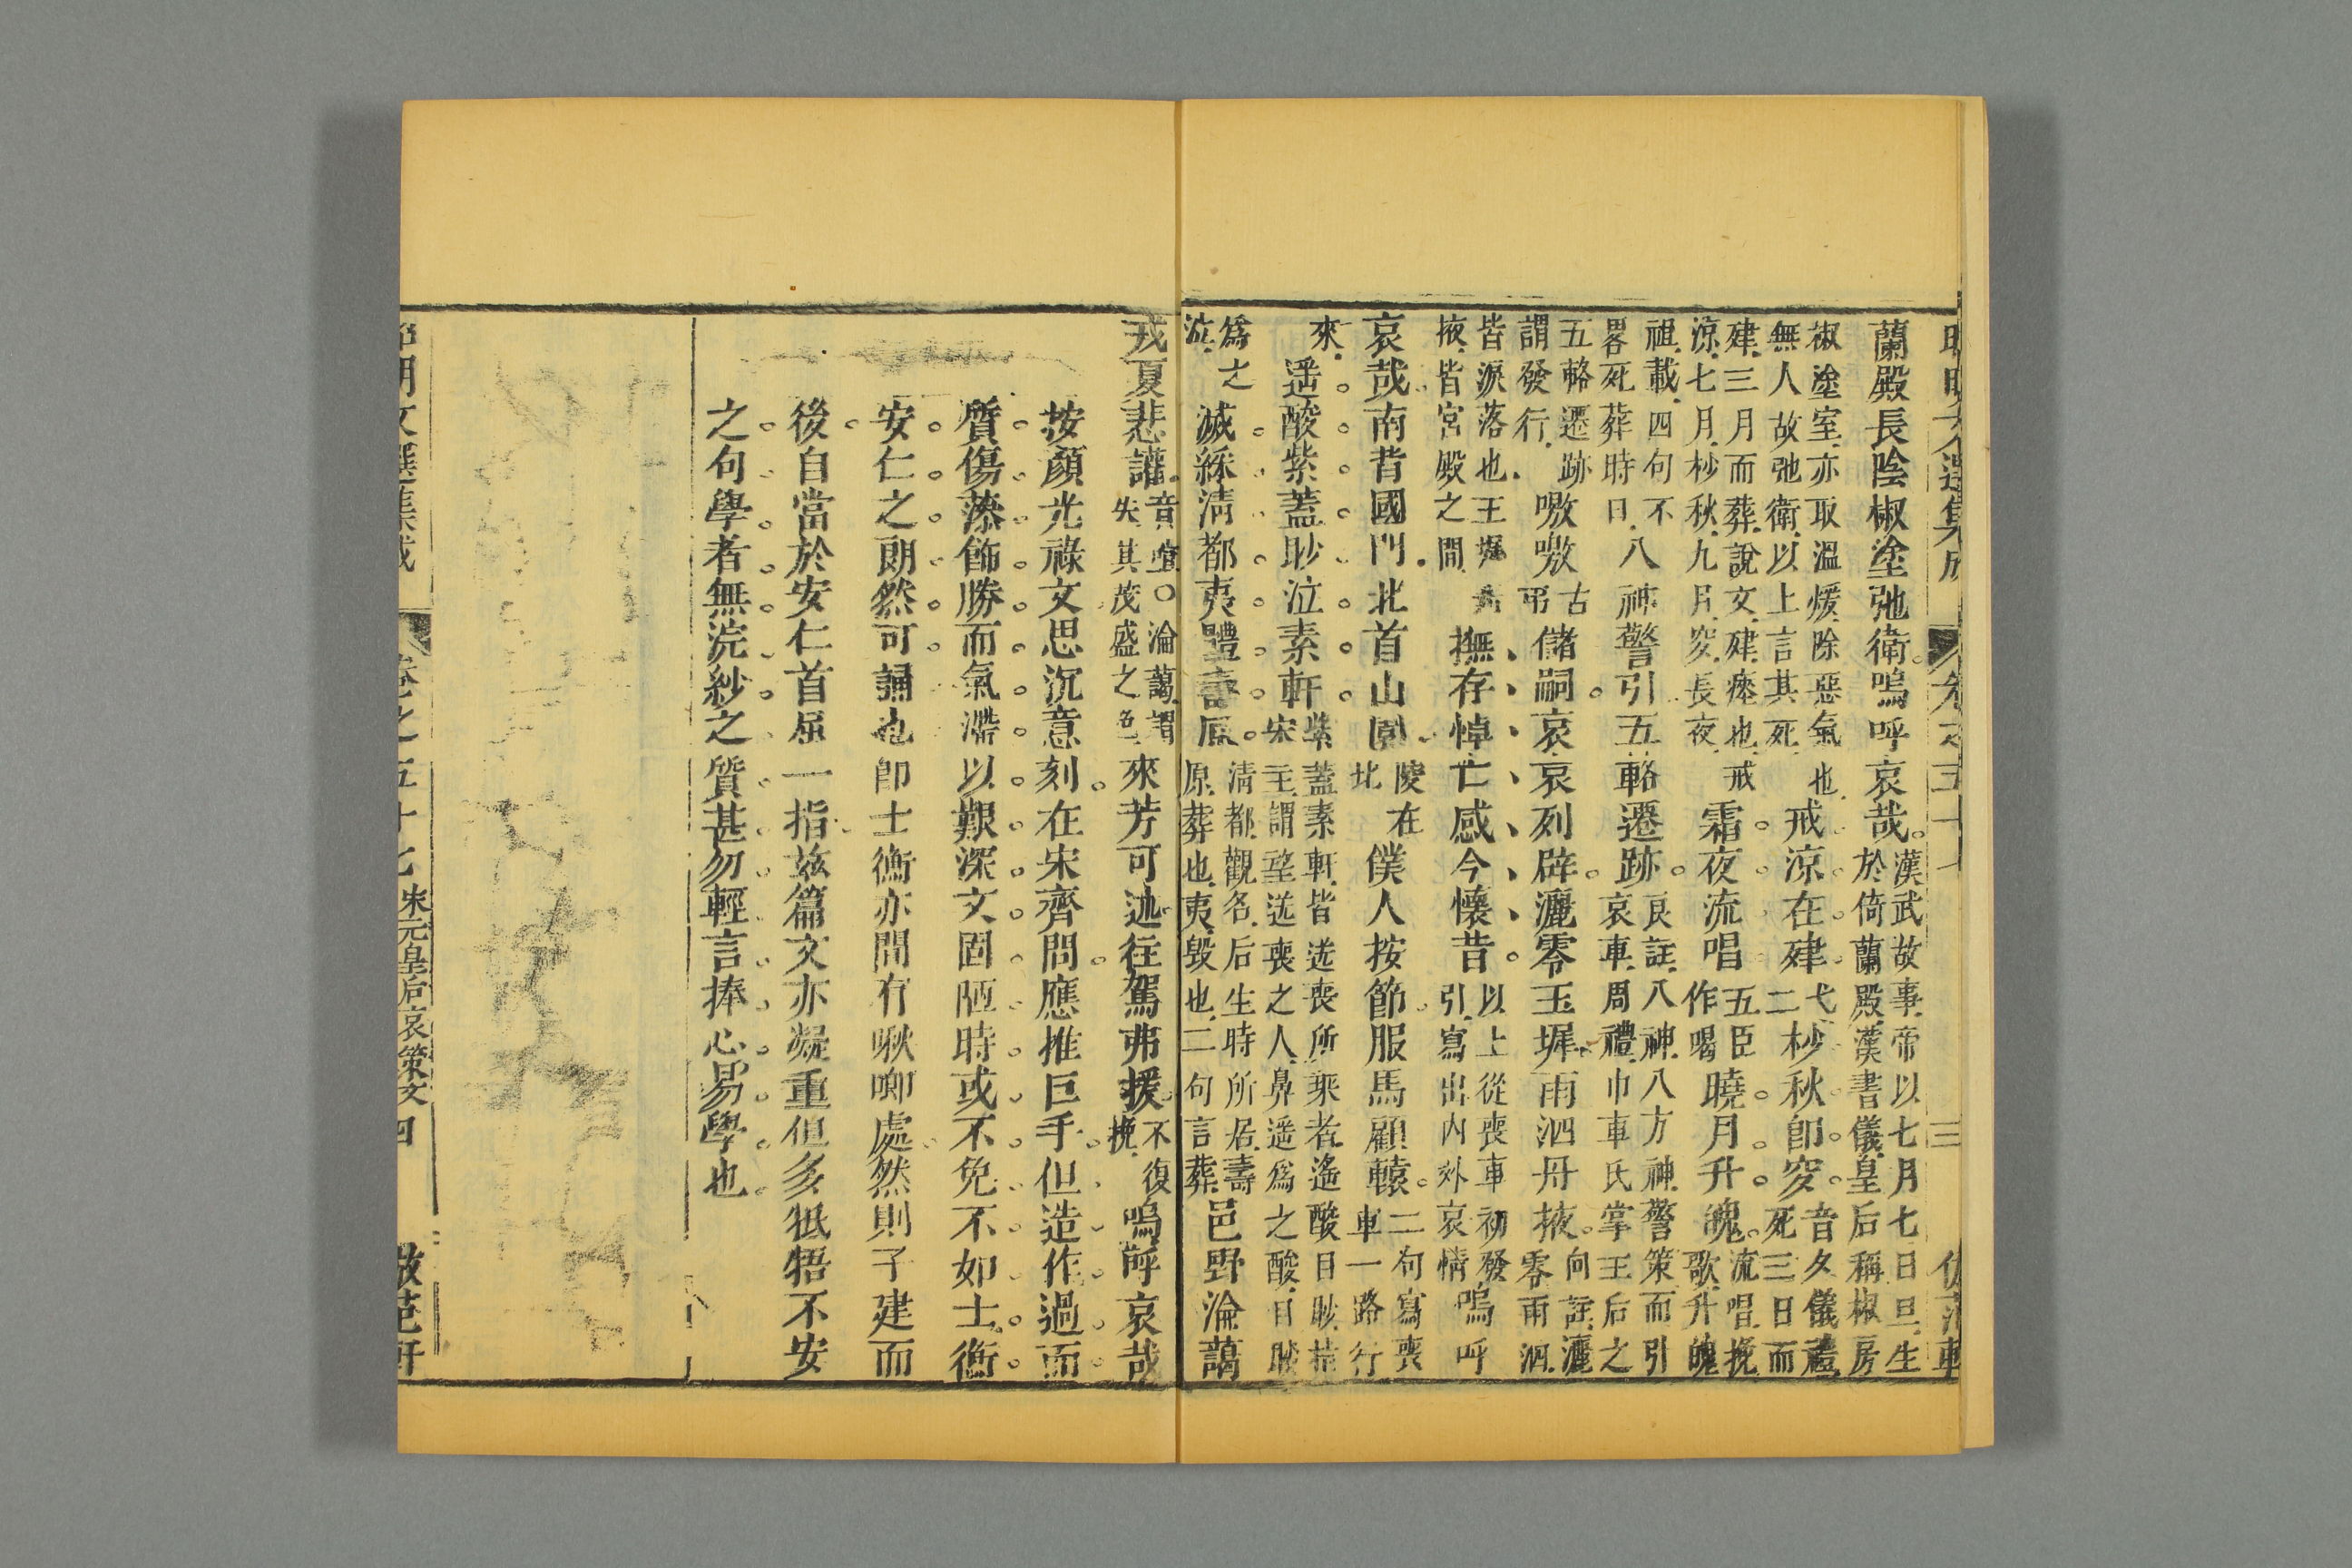 蘭殿長陰椒塗弛衛嗚呼哀哉漢武故事帝以七月七日旦生於倚蘭殿漢書儀皇后稱椒房
椒塗室亦取溫煖除惡氣也無人故弛衛以上言其死戒涼在律弋杪秋即穸音夕儀禮二死三日而
建三月而葬說文建瘞也戒涼七月杪秋九月穸長夜霜夜流唱五臣作喝曉月升魄流唱挽歌升魄
祖載四句不畧死葬時日八神警引五輅遷跡良註八神八方神警策而引哀車周禮巾車氏掌王后之
五輅遷跡謂發行嗷嗷古弔儲嗣哀哀列辟灑零玉墀雨泗丹掖向註灑零雨泗
皆淚落也玉墀掖皆宮殿之間撫存悼亡感今懷昔以上從喪車初發引寫出內外哀情嗚呼
哀哉南背國門北首山園陵在北僕人按節服馬顧轅二句寫喪車一路行
來遥酸紫蓋眇泣素軒紫蓋素軒皆送喪所乘者遙酸日眇指宋主謂望送喪之人鼻遥為之酸目眇
為之泣滅綵清都夷體壽原清都觀名后生時所居壽原葬也夷毀也二句言葬邑野淪藹
戎夏悲讙音萱○淪藹謂失其茂盛之色來芳可述往駕弗援不復挽嗚呼哀哉
按顏光祿文思沉意刻在宋齊問應推巨手但造作過而
質傷藻飾勝而氣滯以艱深文固陋時或不免不如士衡
安仁之朗然可誦也即士衡亦間有啾唧處然則子建而
後自當於安仁首屈一指兹篇文亦凝重但多牴牾不安
之句學者無浣紗之質甚勿輕言捧心易學也
昭明文選集成
卷之五十七
宋元皇后哀策文
四
倣范軒